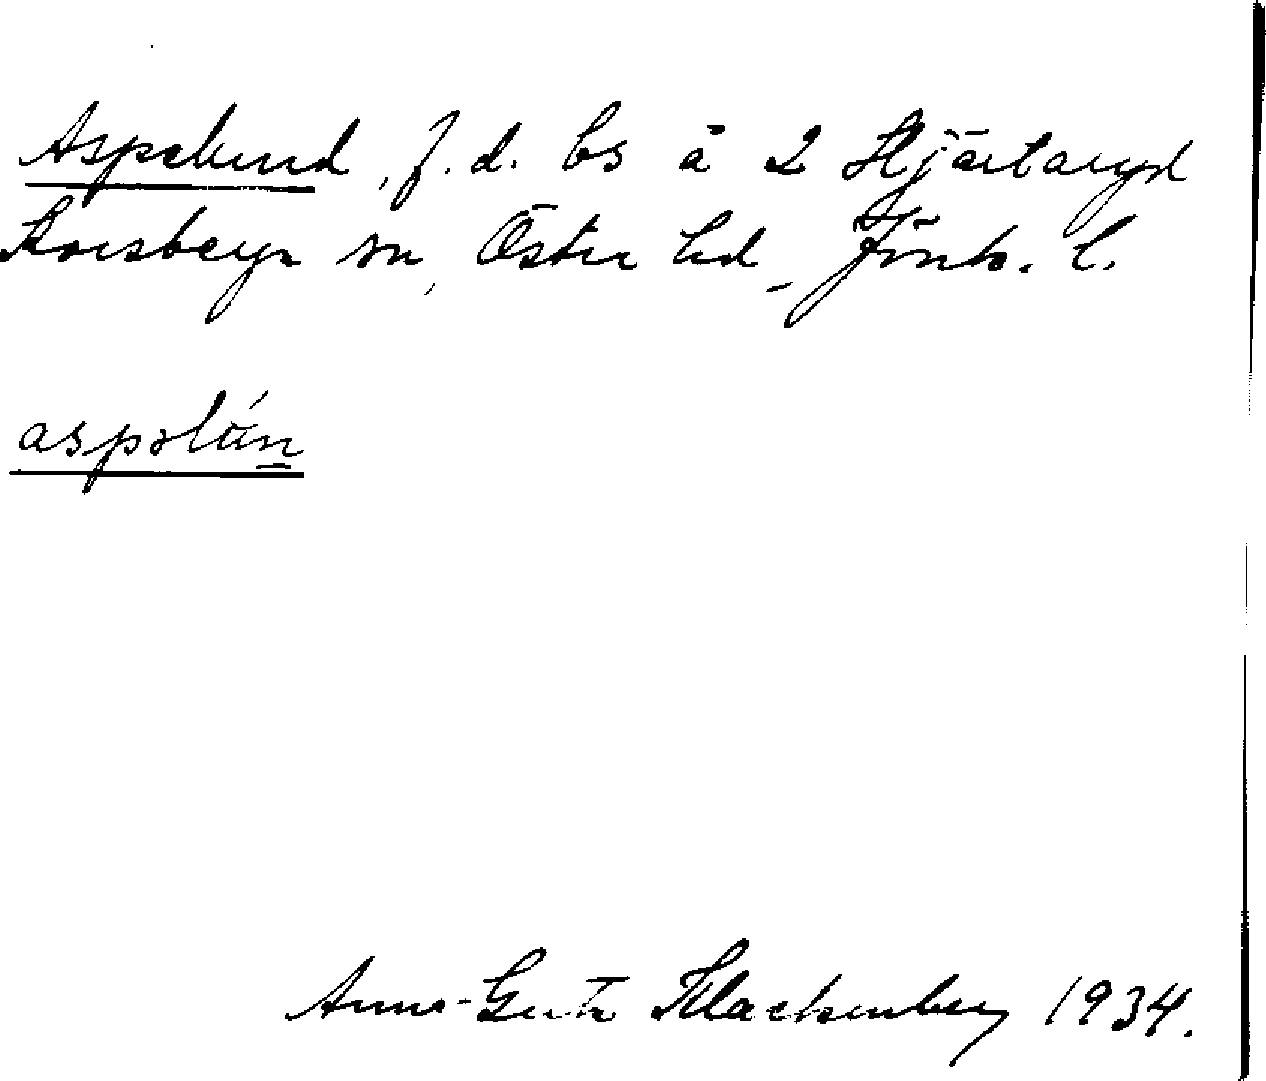 Aspelund, f.d. bs å 2 Hjärtaryd
Korsberga sn, Östra hd, Jönk. l.
aspəlún
Anna-Greta Klackenberg 1934.